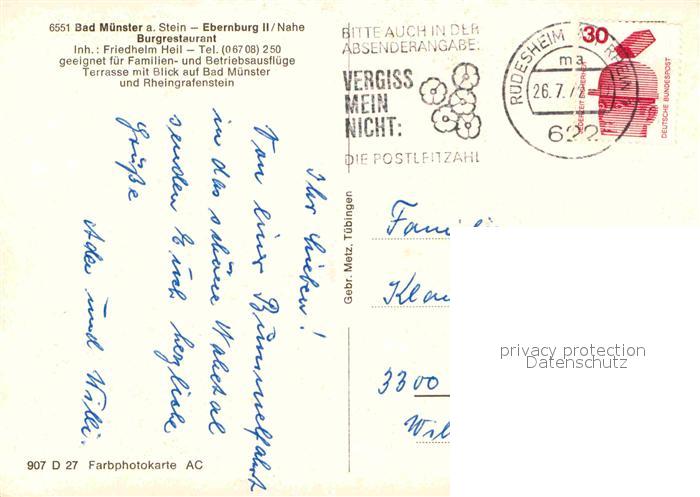 6551 Bad Münster a. Stein — Ebernburg II/Nahe
Burgrestaurant
Inh.: Friedhelm Heil — Tel. (067 08) 250
geeignet für Familien- und Betriebsausflüge
Terrasse mit Blick auf Bad Münster
und Rheingrafenstein
BITTE AUCH IN DER
ABSENDERANGABE:
VERGISS
MEIN
NICHT:
DIE POSTLEITZAHL
RÜDESHEIM AM RHEIN
ma
26.7.7
622
30
JEDERZEIT SICHERHEIT
DEUTSCHE BUNDESPOST
Ihr Lieben!
Von einer Bummelfahrt
in das schöne Nahetal
senden Euch herzliche
Grüße
und Willi.
Gebr. Metz, Tübingen
Famili
Kla
3300
Wil
privacy protection
Datenschutz
907 D 27 Farbphotokarte AC